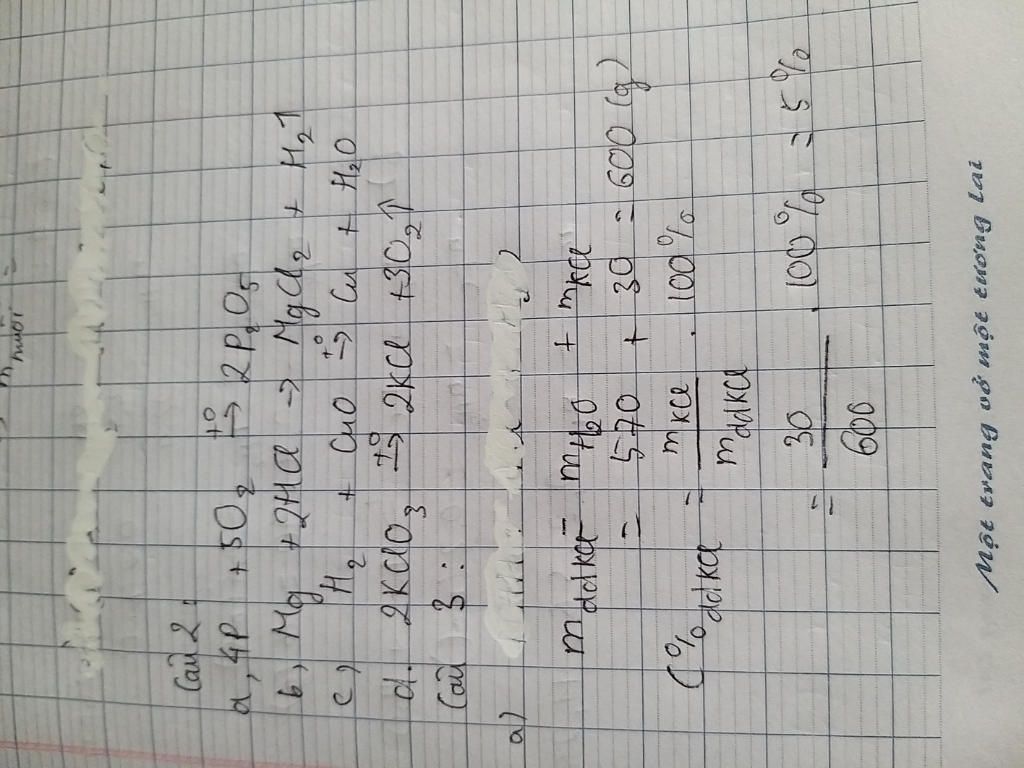 m muối =
Câu 2:
a, 4P + 5O2 t°→ 2P2O5
b, Mg + 2HCl → MgCl2 + H2↑
c, H2 + CuO t°→ Cu + H2O
d. 2KClO3 t°→ 2KCl + 3O2↑
Câu 3:
a)
mddKCl = mH2O + mKCl
= 570 + 30 = 600 (g)
C%ddKCl = mKCl / mddKCl . 100%
= 30 / 600 . 100% = 5%
Một trang vở một tương lai